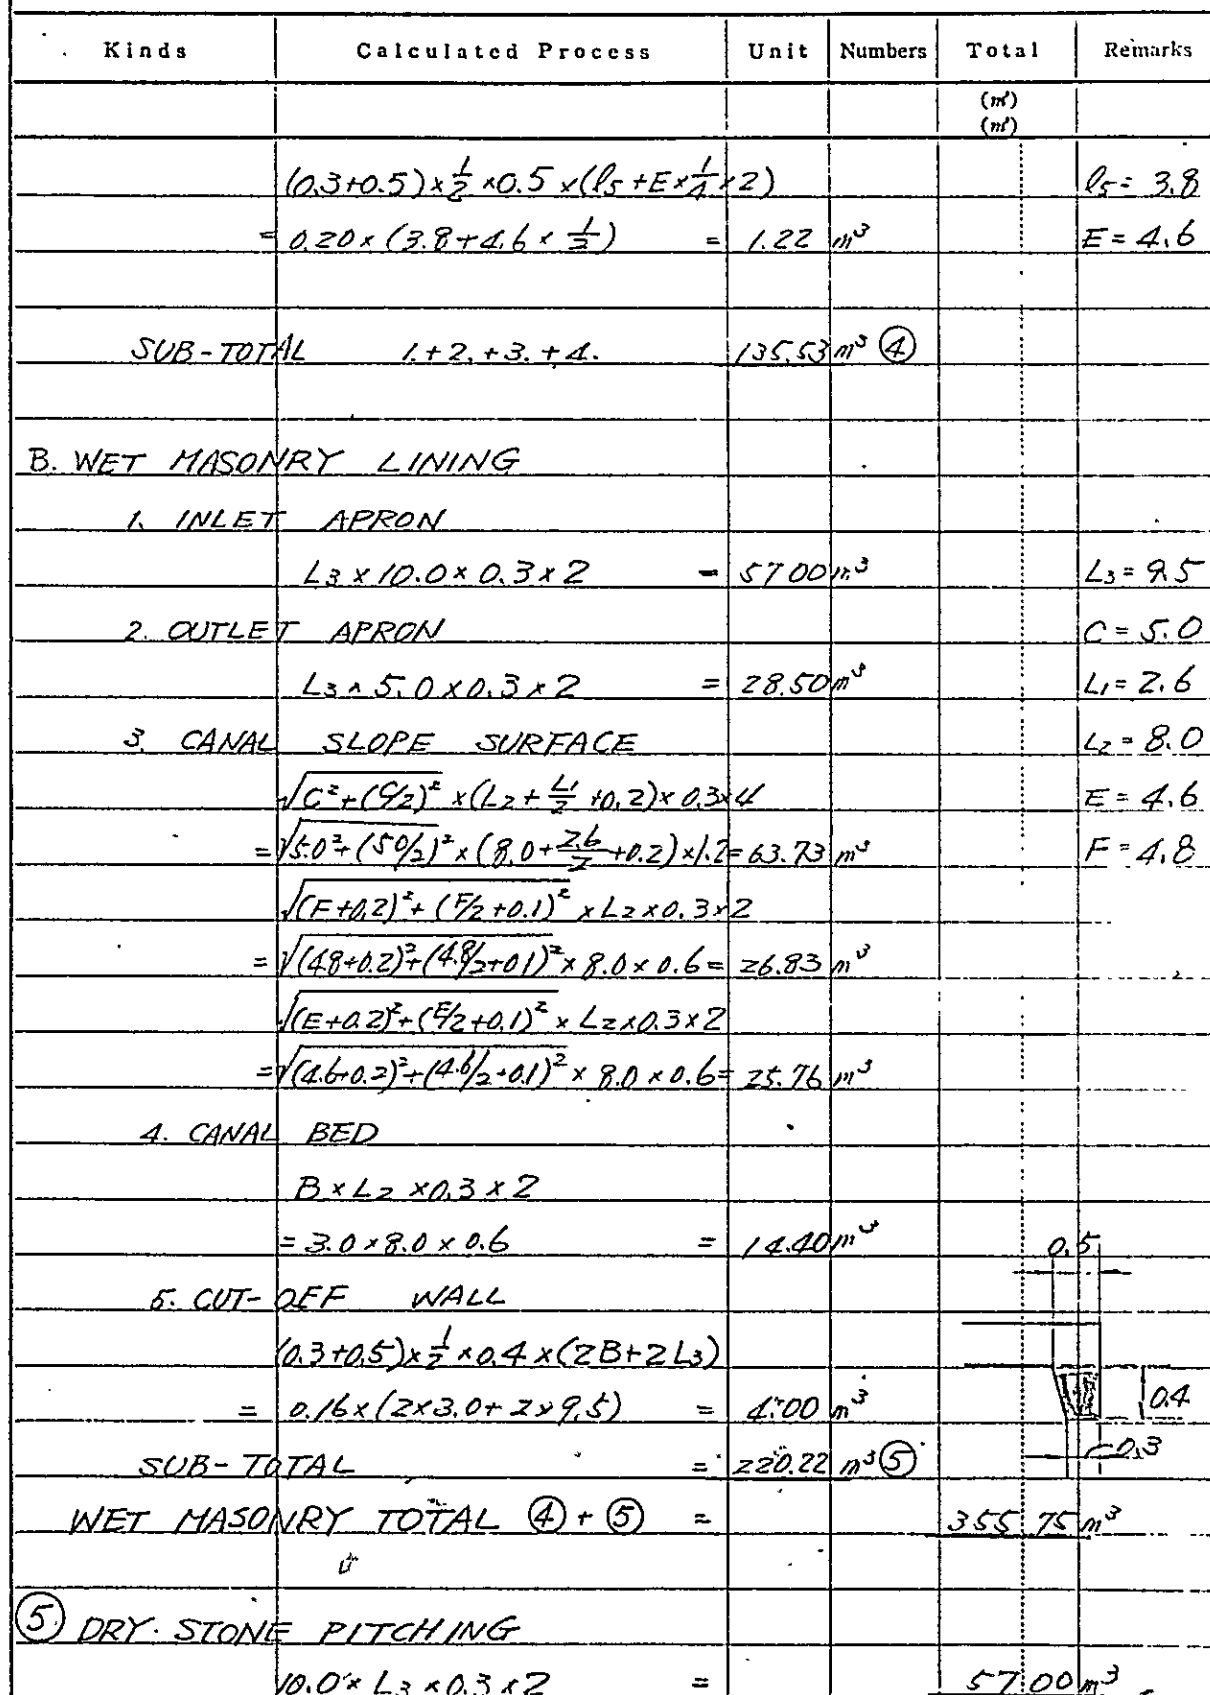 Kinds Calculated Process Unit Numbers Total Remarks
(m³)
(m³)
(0.3+0.5)×1/2×0.5×(l5+E×1/4×2) l5=3.8
= 0.20×(3.8+4.6×1/2) = 1.22 m³ E=4.6
SUB-TOTAL 1.+2.+3.+4. 135.53 m³ ④
B. WET MASONRY LINING
1. INLET APRON
L3×10.0×0.3×2 = 57.00 m³ L3=9.5
2. OUTLET APRON C=5.0
L3×5.0×0.3×2 = 28.50 m³ L1=2.6
3. CANAL SLOPE SURFACE L2=8.0
√(C²+(C/2)²)×(L2+L1/2+0.2)×0.3×4 E=4.6
=√(5.0²+(5.0/2)²)×(8.0+2.6/2+0.2)×1.2=63.73 m³ F=4.8
√((F+0.2)²+(F/2+0.1)²)×L2×0.3×2
=√((4.8+0.2)²+(4.8/2+0.1)²)×8.0×0.6=26.83 m³
√((E+0.2)²+(E/2+0.1)²)×L2×0.3×2
=√((4.6+0.2)²+(4.6/2+0.1)²)×8.0×0.6=25.76 m³
4. CANAL BED
B×L2×0.3×2
=3.0×8.0×0.6 = 14.40 m³
0.5
5. CUT-OFF WALL
(0.3+0.5)×1/2×0.4×(2B+2L3)
= 0.16×(2×3.0+2×9.5) = 4.00 m³
0.4
0.3
SUB-TOTAL = 220.22 m³ ⑤
WET MASONRY TOTAL ④+⑤ = 355.75 m³
⑤ DRY STONE PITCHING
10.0×L3×0.3×2 = 57.00 m³